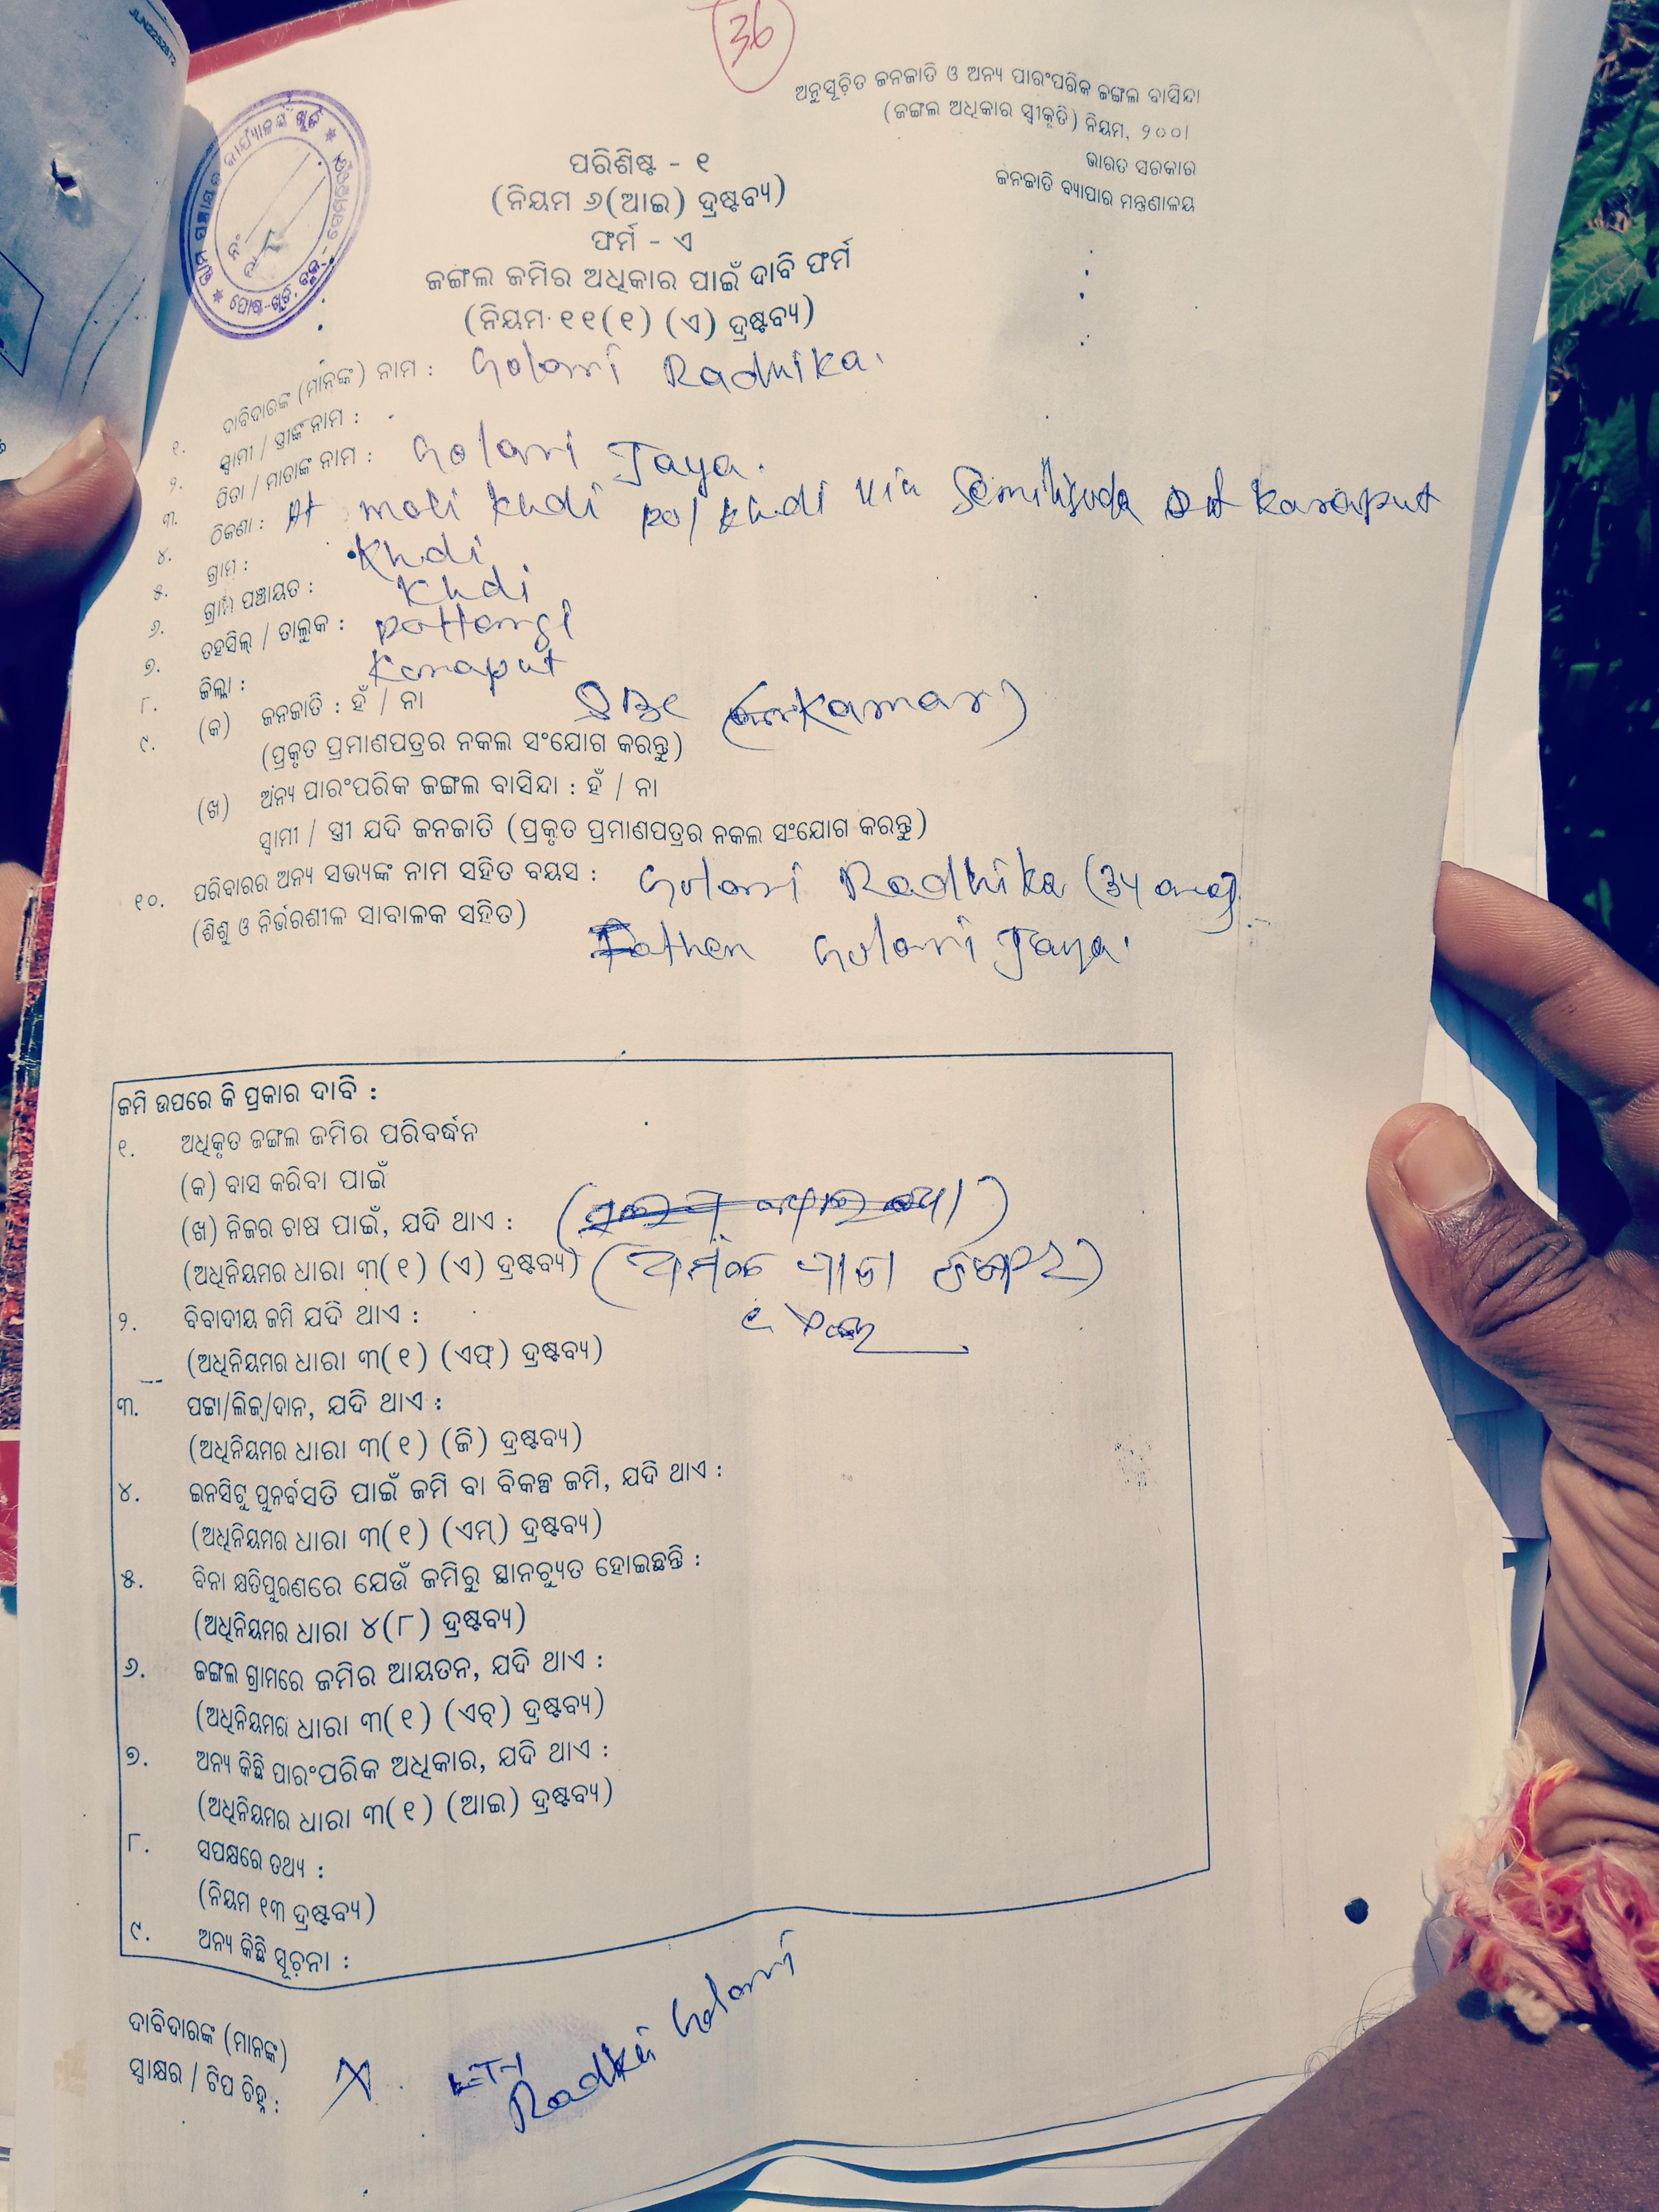 JLN2252672
36
ଅନୁସୂଚିତ ଜନଜାତି ଓ ଅନ୍ୟ ପାରଂପରିକ ଜଙ୍ଗଲ ବାସିନ୍ଦା
(ଜଙ୍ଗଲ ଅଧିକାର ସ୍ୱୀକୃତି) ନିୟମ, ୨୦୦୮
ଭାରତ ସରକାର
ଜନଜାତି ବ୍ୟାପାର ମନ୍ତ୍ରଣାଳୟ
ପରିଶିଷ୍ଟ - ୧
(ନିୟମ ୬(ଆଇ) ଦ୍ରଷ୍ଟବ୍ୟ)
ଫର୍ମ - ଏ
ଜଙ୍ଗଲ ଜମିର ଅଧିକାର ପାଇଁ ଦାବି ଫର୍ମ
(ନିୟମ ୧୧(୧) (ଏ) ଦ୍ରଷ୍ଟବ୍ୟ)
୧. ଦାବିଦାରଙ୍କ (ମାନଙ୍କ) ନାମ : Golori Radhika.
୨. ସ୍ୱାମୀ / ସ୍ତ୍ରୀଙ୍କ ନାମ :
୩. ପିତା / ମାତାଙ୍କ ନାମ : Golori Jaya.
୪. ଠିକଣା : At mali khdi po/ khdi via Semiliguda Dt Koraput
୫. ଗ୍ରାମ : Khdi
୬. ଗ୍ରାମ ପଞ୍ଚାୟତ : Khdi
୭. ତହସିଲ୍ / ତାଲୁକ : pottangi
୮. ଜିଲ୍ଲା : Koraput
୯. (କ) ଜନଜାତି : ହଁ / ନା (kamar)
(ପ୍ରକୃତ ପ୍ରମାଣପତ୍ରର ନକଲ ସଂଯୋଗ କରନ୍ତୁ)
(ଖ) ଅନ୍ୟ ପାରଂପରିକ ଜଙ୍ଗଲ ବାସିନ୍ଦା : ହଁ / ନା
ସ୍ୱାମୀ / ସ୍ତ୍ରୀ ଯଦି ଜନଜାତି (ପ୍ରକୃତ ପ୍ରମାଣପତ୍ରର ନକଲ ସଂଯୋଗ କରନ୍ତୁ)
୧୦. ପରିବାରର ଅନ୍ୟ ସଭ୍ୟଙ୍କ ନାମ ସହିତ ବୟସ : Golori Radhika
(ଶିଶୁ ଓ ନିର୍ଭରଶୀଳ ସାବାଳକ ସହିତ) Father Golori Jaya.
ଜମି ଉପରେ କି ପ୍ରକାର ଦାବି :
୧. ଅଧିକୃତ ଜଙ୍ଗଲ ଜମିର ପରିବର୍ଦ୍ଧନ
(କ) ବାସ କରିବା ପାଇଁ
(ଖ) ନିଜର ଚାଷ ପାଇଁ, ଯଦି ଥାଏ :
(ଅଧିନିୟମର ଧାରା ୩(୧) (ଏ) ଦ୍ରଷ୍ଟବ୍ୟ)
୨. ବିବାଦୀୟ ଜମି ଯଦି ଥାଏ :
(ଅଧିନିୟମର ଧାରା ୩(୧) (ଏଫ୍) ଦ୍ରଷ୍ଟବ୍ୟ)
୩. ପଟ୍ଟା/ଲିଜ୍/ଦାନ, ଯଦି ଥାଏ :
(ଅଧିନିୟମର ଧାରା ୩(୧) (ଜି) ଦ୍ରଷ୍ଟବ୍ୟ)
୪. ଇନସିଟୁ ପୁନର୍ବସତି ପାଇଁ ଜମି ବା ବିକଳ୍ପ ଜମି, ଯଦି ଥାଏ :
(ଅଧିନିୟମର ଧାରା ୩(୧) (ଏମ୍) ଦ୍ରଷ୍ଟବ୍ୟ)
୫. ବିନା କ୍ଷତିପୁରଣରେ ଯେଉଁ ଜମିରୁ ସ୍ଥାନଚ୍ୟୁତ ହୋଇଛନ୍ତି :
(ଅଧିନିୟମର ଧାରା ୪(୮) ଦ୍ରଷ୍ଟବ୍ୟ)
୬. ଜଙ୍ଗଲ ଗ୍ରାମରେ ଜମିର ଆୟତନ, ଯଦି ଥାଏ :
(ଅଧିନିୟମର ଧାରା ୩(୧) (ଏଚ୍) ଦ୍ରଷ୍ଟବ୍ୟ)
୭. ଅନ୍ୟ କିଛି ପାରଂପରିକ ଅଧିକାର, ଯଦି ଥାଏ :
(ଅଧିନିୟମର ଧାରା ୩(୧) (ଆଇ) ଦ୍ରଷ୍ଟବ୍ୟ)
୮. ସପକ୍ଷରେ ତଥ୍ୟ :
(ନିୟମ ୧୩ ଦ୍ରଷ୍ଟବ୍ୟ)
୯. ଅନ୍ୟ କିଛି ସୂଚନା :
ଦାବିଦାରଙ୍କ (ମାନଙ୍କ)
ସ୍ୱାକ୍ଷର / ଟିପ ଚିହ୍ନ : X LTI Radhika Golori